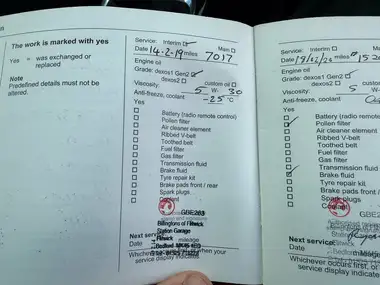 The work is marked with yes
Yes = was exchanged or
replaced
Note
Predefined details must not be
altered.
Service: Interim Main
Date 14-2-19 miles: 7017
Engine oil
Grade: dexos1 Gen2
dexos2 custom oil
Viscosity: 5 W- 30
Anti-freeze, coolant -25°C
Yes
Battery (radio remote control)
Pollen filter
Air cleaner element
Ribbed V-belt
Toothed belt
Fuel filter
Gas filter
Transmission fluid
Brake fluid
Tyre repair kit
Brake pads front / rear
Spark plugs
Coolant
GBE203
Billingtons of Flitwick
Station Garage
Flitwick
Next service
Date mileage
Bedford
Whichever occurs first, or when your
service display indicates
Service: Interim
Date miles:
Engine oil
Grade: dexos1 Gen2
dexos2
Viscosity: 5
Anti-freeze, coolant
Yes
Battery (radio remote
Pollen filter
Air cleaner element
Ribbed V-belt
Toothed belt
Fuel filter
Gas filter
Transmission fluid
Brake fluid
Tyre repair kit
Brake pads front
Spark plugs
Coolant
Next service
Date
Whichever occurs first, or
service display indicates